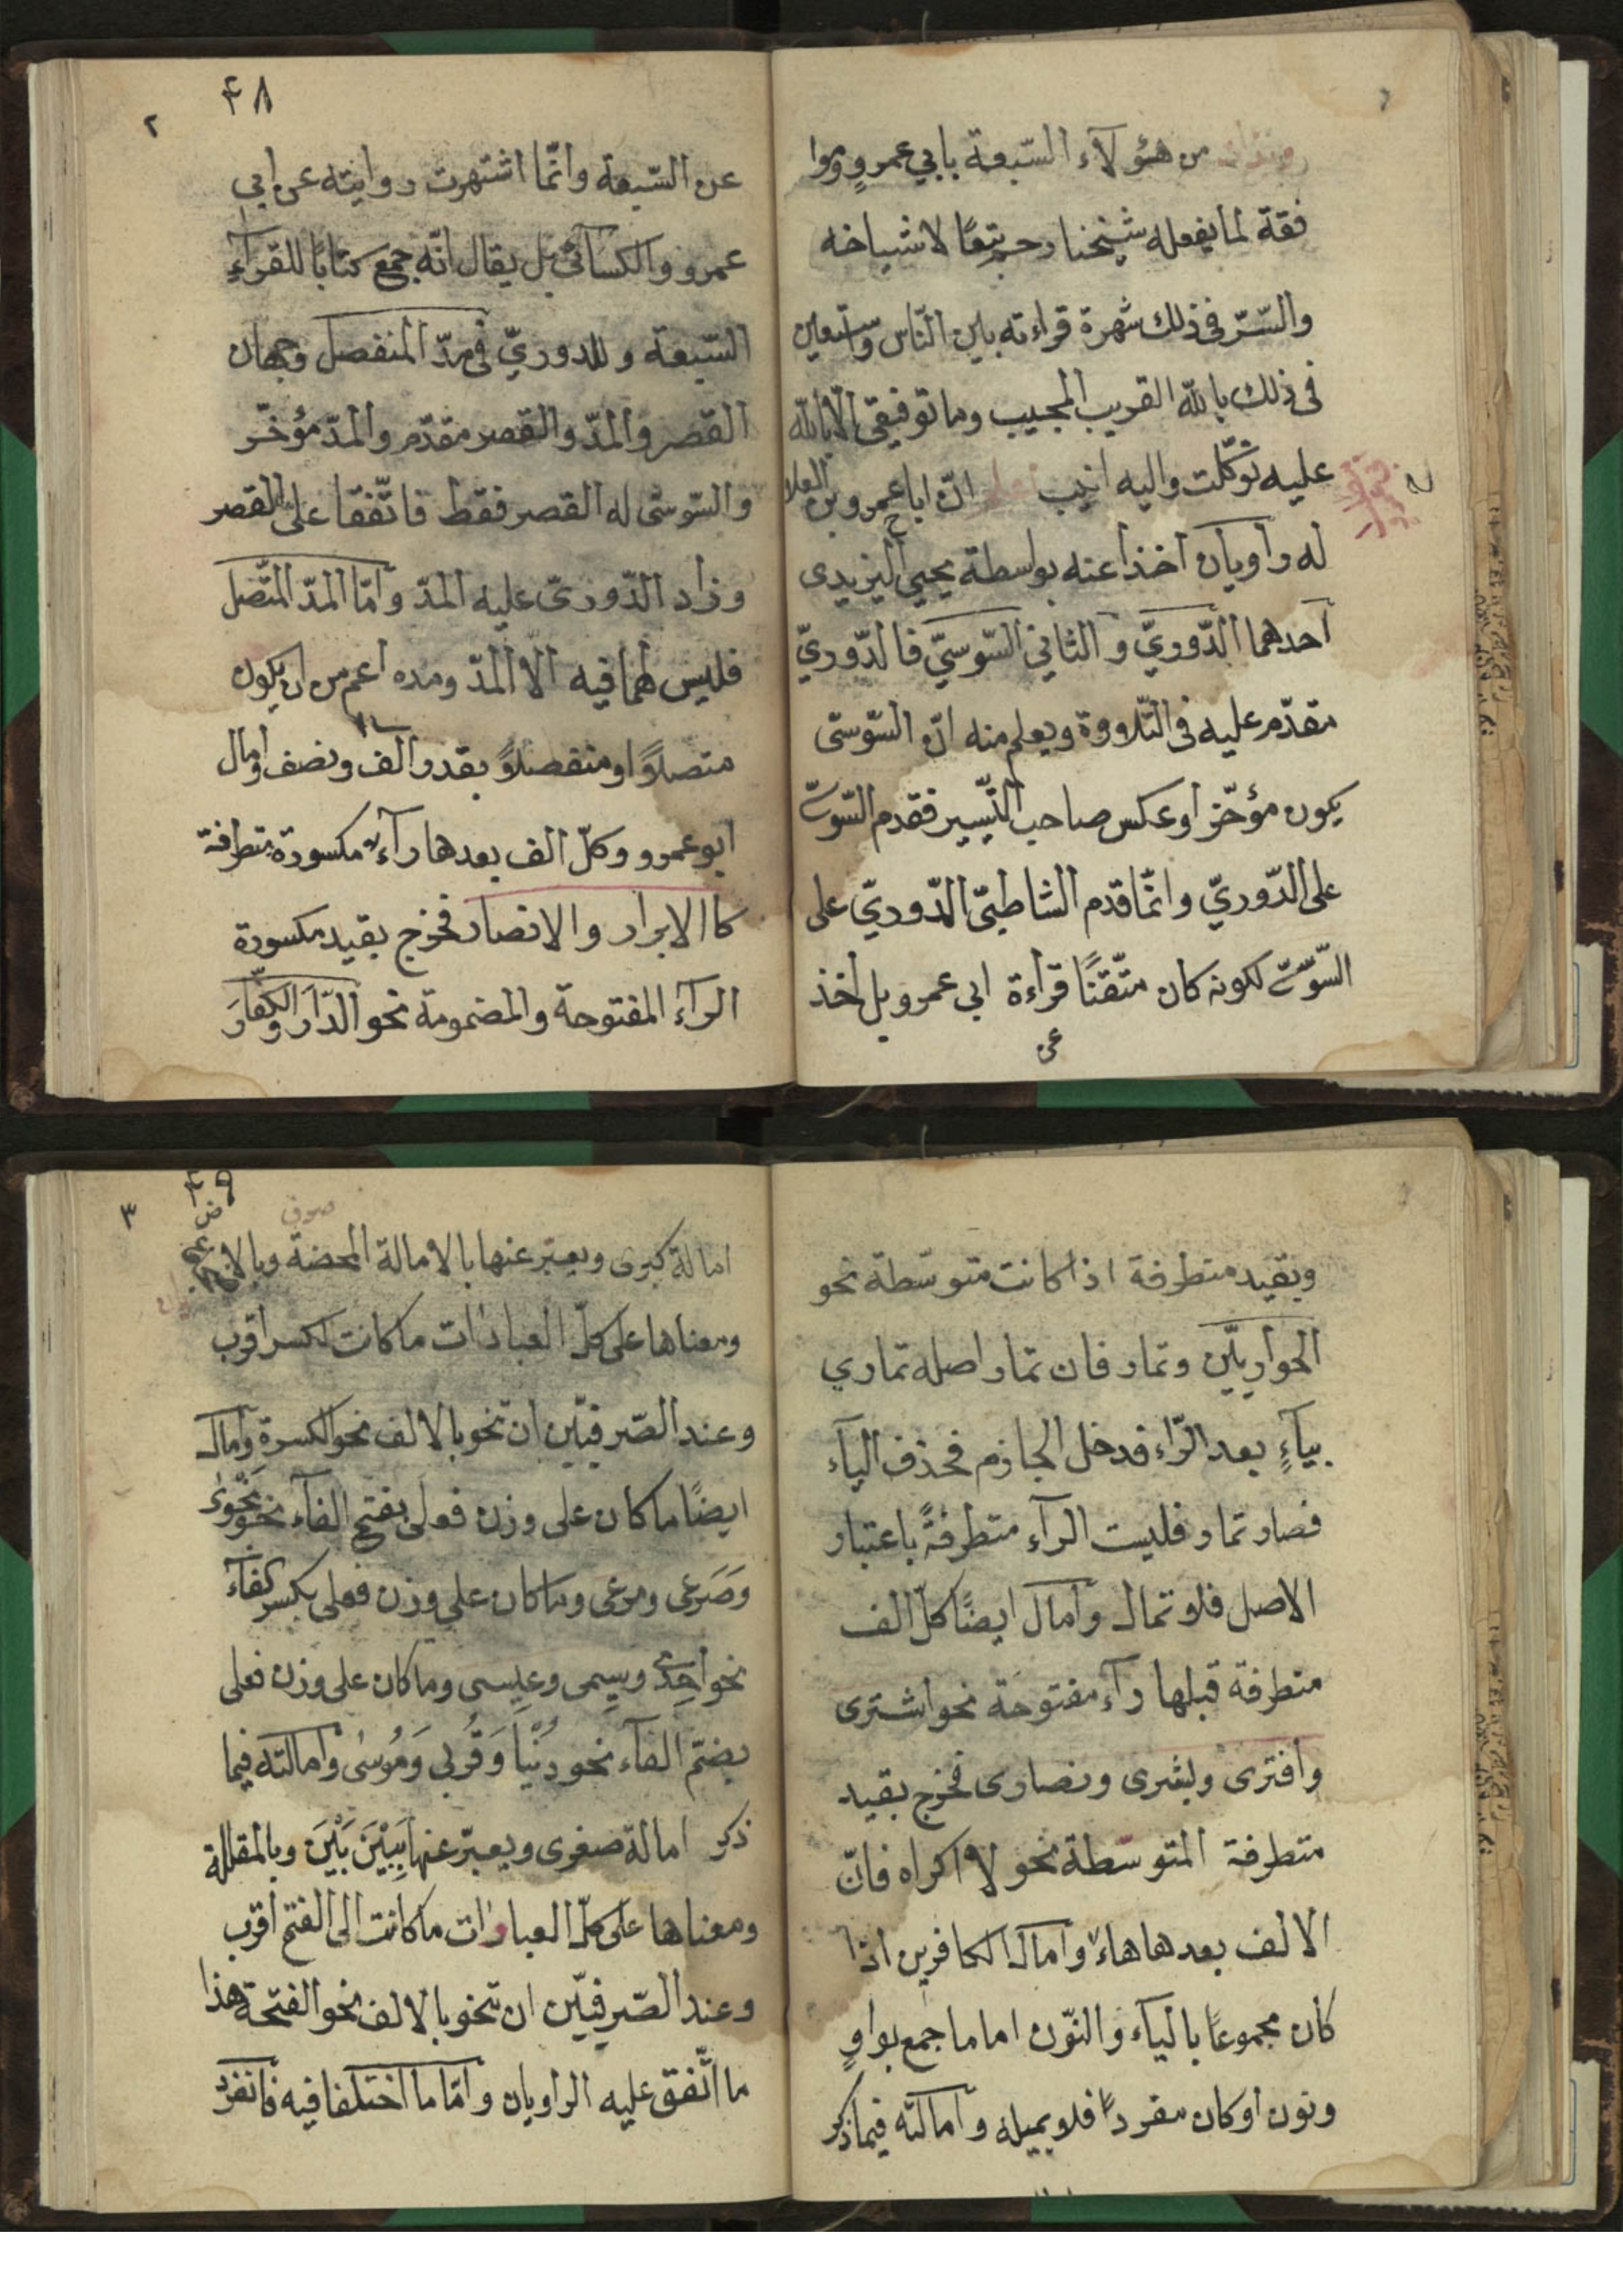 من هؤلآء السّبعة بابي عمروٍ وروا
فقة لما يفعله شيخنا رحـ تبعًا لاشياخه
والسّرّ فى ذلك شهرة قراءته باين النّاس وستعين
فى ذلك بالله القريب المجيب وما توفيقى الّا بالله
عليه توكّلت واليه انيب انّ ابا عمرو بن العلا
له راويان اخذا عنه بواسطة يحيي اليزيدى
احدهما الدّوريّ والثاني السّوسيّ فالدّوريّ
مقدّم عليه فى التّلاووة ويعلم منه انّ السّوسّى
يكون مؤخّرًا وعكس صاحب التّيسير فقدم السّوسّى
على الدّوريّ وانّما قدم الشاطبّى الدّوريّ على
السّوسّى لكونه كان متّقنًا قراءة ابي عمرو بل اخذ
عن
۴۸
٢
عن السّبعة وانّما اشتهرت روايته عن ابي
عمرو والكسآئىّ بل يقال انّه جمع كتابًا للقرآء
السّبعة وللدوريّ فى مدّ المنفصل وجهان
القصر والمدّ والقصر مقدّم والمدّ مؤخّر
والسّوسّى له القصر فقط فاتّفقا على القصر
وزاد الدّوريّ عليه المدّ وامّا المدّ المتّصل
فليس لهما فيه الّا المدّ ومده اعم من ان يكون
متصلاً او منفصلاً بقدر الف ونصف وامال
ابو عمرو وكلّ الف بعدها رآء مكسورة متطرفة
كا الابرار والانصار فخرج بقيد مكسورة
الرآء المفتوحة والمضمومة نحو الدّارَ والكفّارَ
وبقيد متطرفة اذا كانت متوسّطة نحو
الحواريّين وتمار فان تمار اصله تماري
بيآءٍ بعد الرّاء فدخل الجازم فحذف اليآء
فصار تمار فليست الرآء متطرفةً باعتبار
الاصل فلا تمال وامال ايضًا كلّ الف
متطرفة قبلها رآء مفتوحَة نحو اشترى
وافترى وبشرى ونصارى فخرج بقيد
متطرفة المتوسّطة نحو لا اكراه فانّ
الالف بعدها هاء وامال الكافرين اذا
كان مجموعًا باليآء والنّون اما ما جمع بواوٍ
ونون اوكان مفردًا فلا يميله وامالته فيما ذكر
۴۹
٣
امالة كبرى ويعبّر عنها بالامالة المحضة وبالاضجاع
ومعناها على كلّ العبارات ما كانت لكسر اقرب
وعند الصّرفيّين ان تنحو بالالف نحو الكسرة وامال
ايضًا ما كان على وزن فعلى بفتح الفآء نحو نَجْوىٰ
وصَرعى ومرعى وما كان على وزن فعلى بكسر الفآء
نحو احِدى وسِيمى وعيسى وما كان على وزن فعلى
بضمّ الفآء نحو دُنْيا وَقُربى وَمُوسٰى وامالته فيما
ذكر امالة صغرى ويعبّر عنها ببَيْنَ بَيْنَ وبالمقللة
ومعناها على كلّ العبارات ما كانت الى الفتح اقرب
وعند الصّرفيّين ان تنحو بالالف نحو الفتحة هذا
ما اتّفق عليه الراويان وامّا ما اختلفا فيه فانفرد